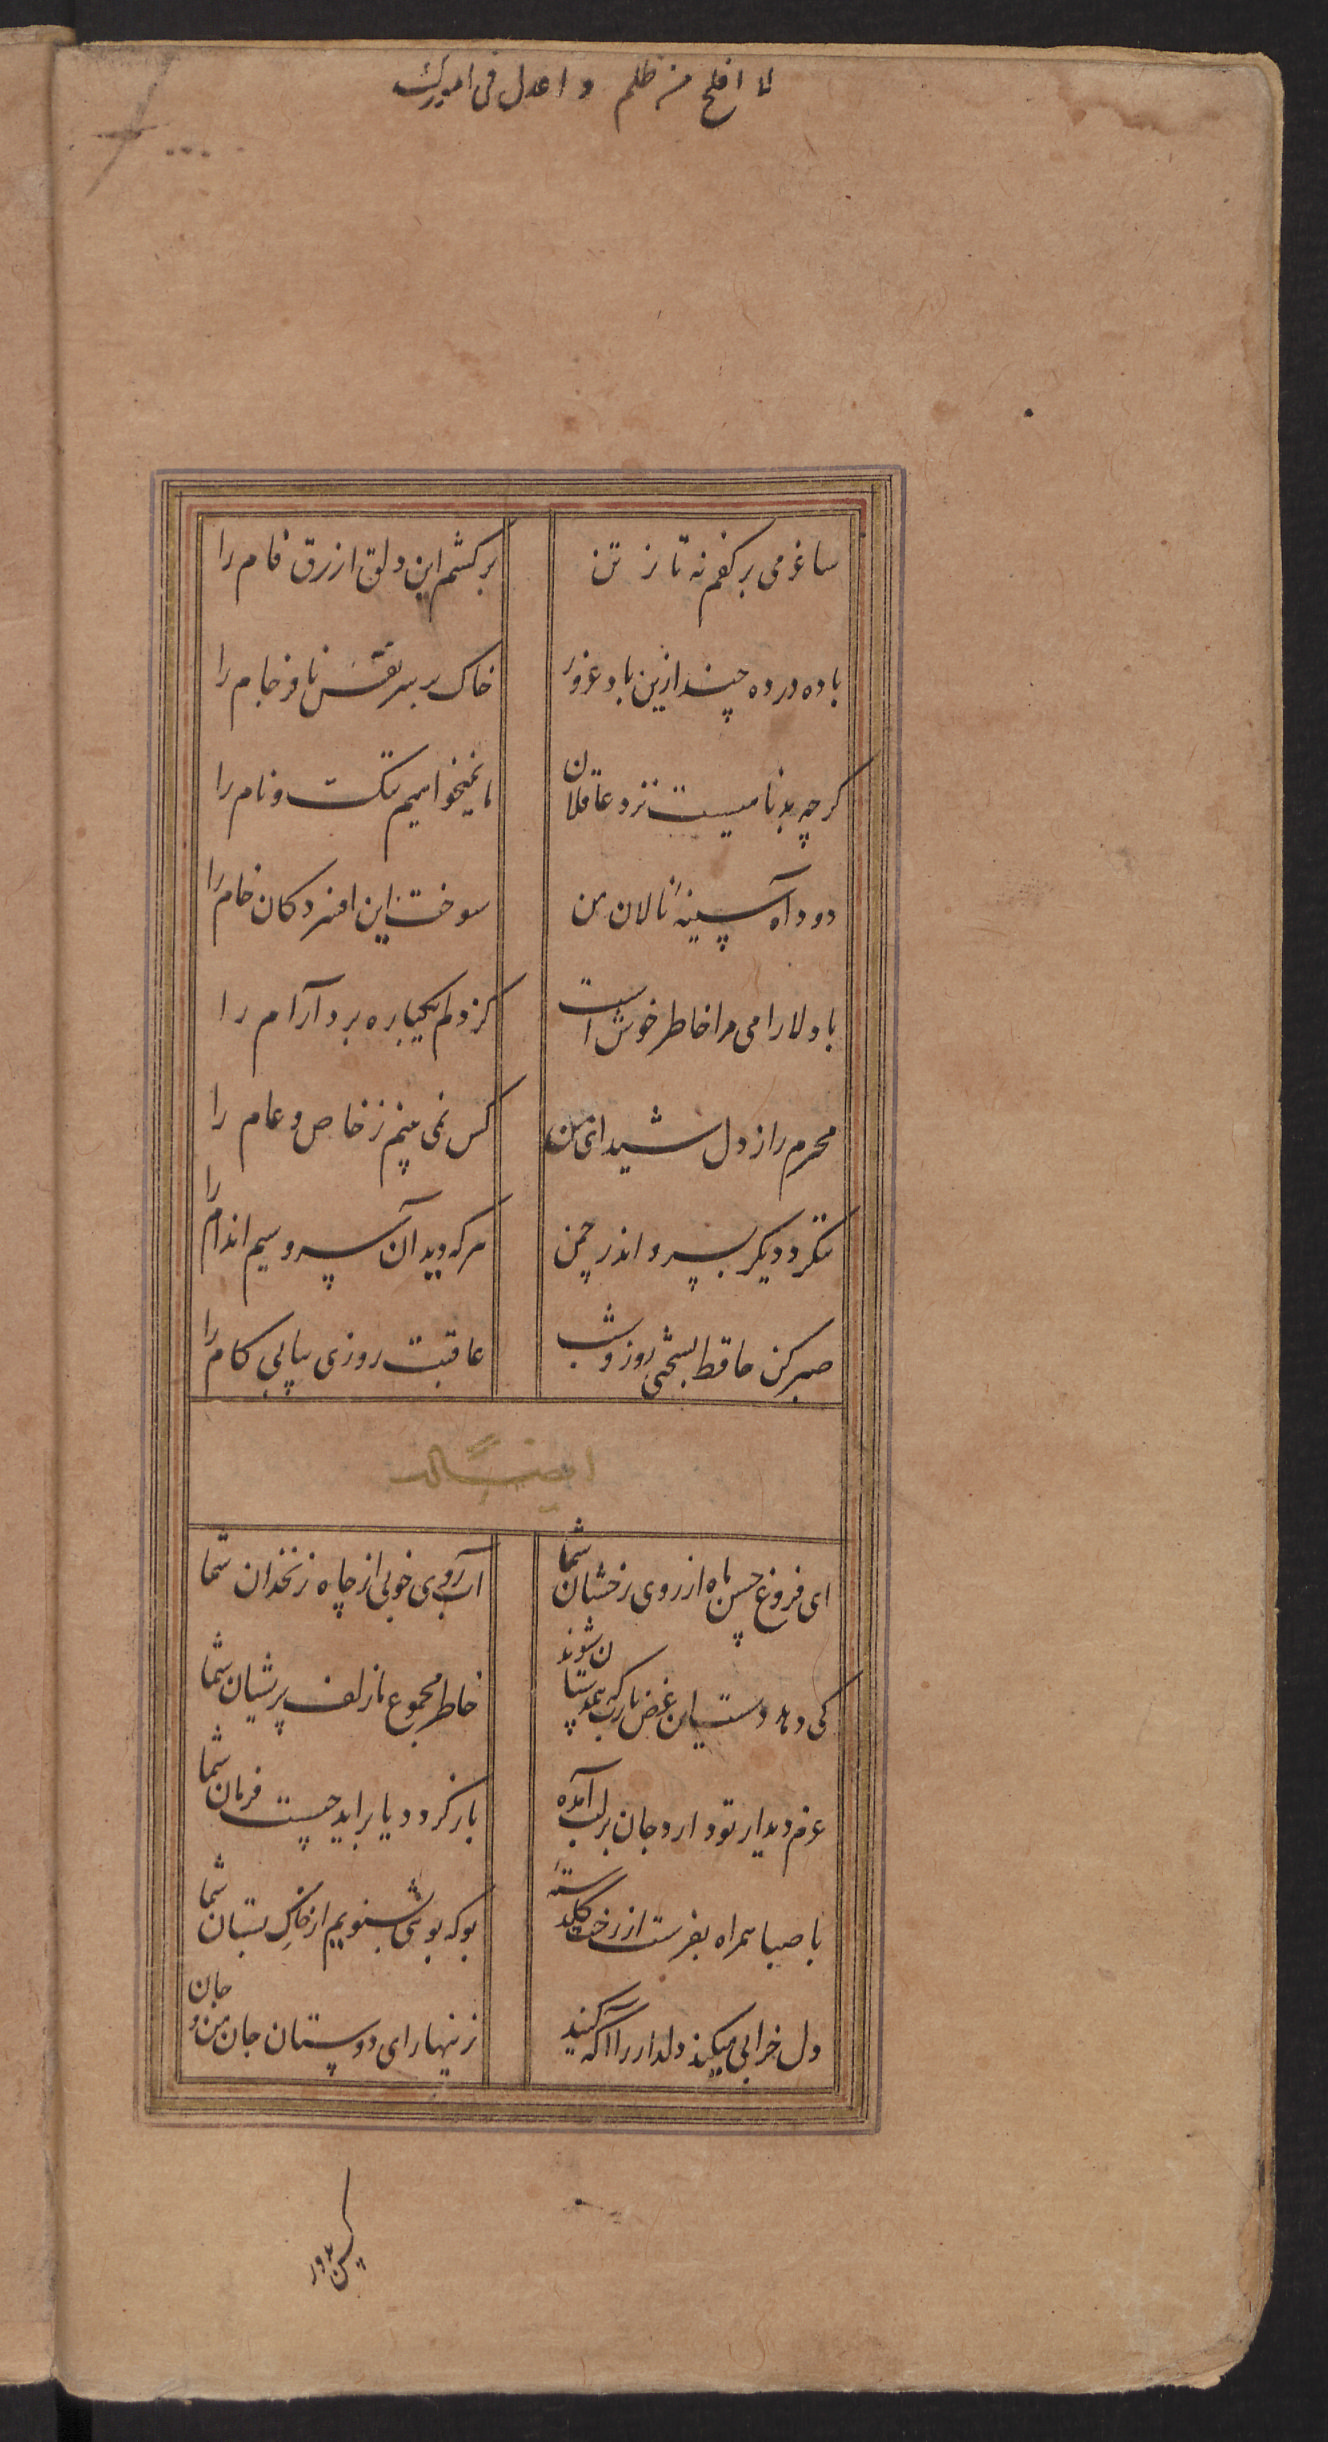 لا افلح من ظلم و اعدل فی امورک
ساغر می بر کفم نه تا ز تن
برکشم این دلق ازرق فام را
باده در ده چند ازین باد غرور
خاک بر سر نفس نافرجام را
کرچه بدنامیست نزد عاقلان
ما نمیخواهیم ننک و نام را
دود آه سینهٔ نالان من
سوخت این افسردکان خام را
با دلارامی مرا خاطر خوش است
کز دلم یکباره برد آرام را
محرم راز دل شیدای من
کس نمی بینم ز خاص و عام را
ننکرد دیکر بسرو اندر چمن
هر که دید آن سرو سیم اندام را
صبر کن حافظ بسختی روز و شب
عاقبت روزی بیابی کام را
ای فروغ حسن ماه از روی رخشان شما
آب روی خوبی از چاه زنخدان شما
کی دهد دست این غرض یا رب که همدستان شوند
خاطر مجموع ما زلف پریشان شما
عزم دیدار تو دارد جان بر لب آمده
باز کردد یا براید چیست فرمان شما
با صبا همراه بفرست از رخت کلدستهٔ
بو که بوئی بشنویم از خاک بستان شما
دل خرابی میکند دلدار را آکه کنید
زینهار ای دوستان جان من و جان